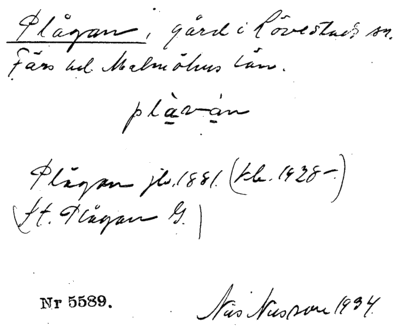 Plågan, gård i Lövestads sn.
Färs hd. Malmöhus län.
plàván
Plågan jb. 1881. (tb. 1928-)
(st. Plågan G.)
Nr 5589.
Nils Nilsson 1934.